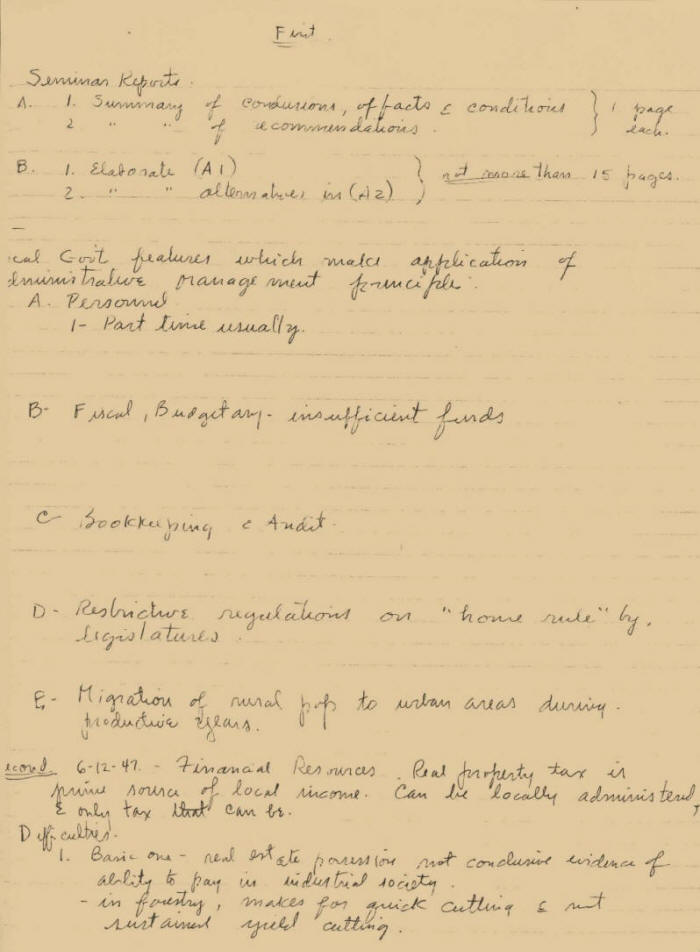 First.
Seminar Reports.
A. 1. Summary of conclusions, of facts & conditions } 1 page
2 " " of recommendations. } each.
B. 1. Elaborate (A1) } not more than 15 pages.
2. " " alternatives in (A2) }
cal Govt features which make application of
dministrative management principle.
A. Personnel
1- Part time usually.
B- Fiscal, Budgetary- insufficient funds
C- Bookkeeping & Audit.
D- Restrictive regulations on "home rule" by.
legislatures.
E- Migration of rural pop to urban areas during.
productive years.
econd. 6-12-47. - Financial Resources. Real property tax is
prime source of local income. Can be locally administered,
& only tax that can be.
Difficulties.
1. Basic one - real estate possession not conclusive evidence of
ability to pay in industrial society.
- in forestry, makes for quick cutting & not
sustained yield cutting.